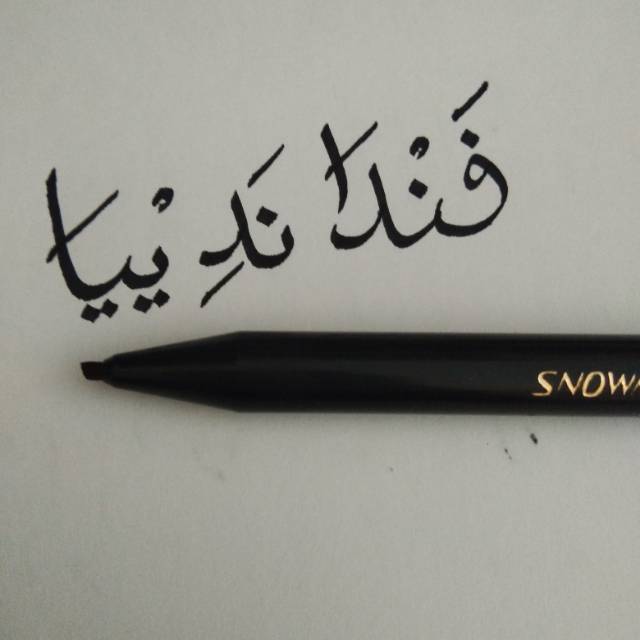 فَنْدَا نَدِيْيَا
SNOWM